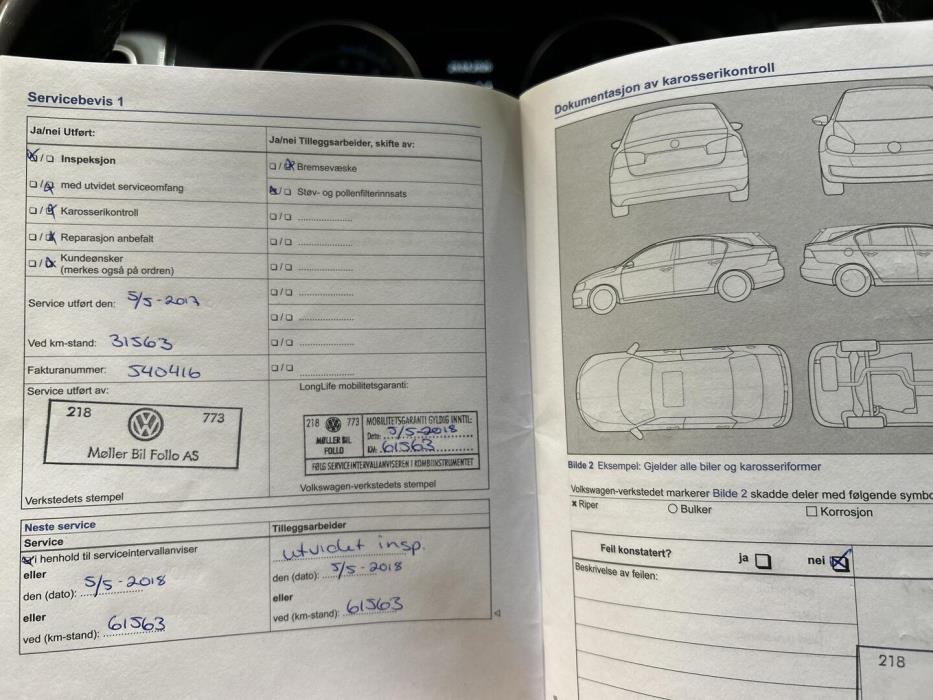 Servicebevis 1
Ja/nei Utført:
Inspeksjon
med utvidet serviceomfang
Karosserikontroll
Reparasjon anbefalt
Kundeønsker
(merkes også på ordren)
Service utført den: 5/5-2017
Ved km-stand: 31563
Fakturanummer: 540416
Ja/nei Tilleggsarbeider, skifte av:
Bremsevæske
Støv- og pollenfilterinnsats
Service utført av:
218 773
Møller Bil Follo AS
Verkstedets stempel
LongLife mobilitetsgaranti:
218 773 MOBILITETSGARANTI GYLDIG INNTIL:
MØLLER BIL
FOLLO
Dato: 5/5-2018
KM: 61563
FØLG SERVICEINTERVALLANVISEREN I KOMBIINSTRUMENTET
Volkswagen-verkstedets stempel
Neste service
Service
i henhold til serviceintervallanviser
eller
den (dato): 5/5-2018
eller
ved (km-stand): 61563
Tilleggsarbeider
utvidet insp.
den (dato): 5/5-2018
eller
ved (km-stand): 61563
Dokumentasjon av karosserikontroll
Bilde 2 Eksempel: Gjelder alle biler og karosseriformer
Volkswagen-verkstedet markerer Bilde 2 skadde deler med følgende symbo
Riper Bulker Korrosjon
Feil konstatert? ja nei
Beskrivelse av feilen:
218